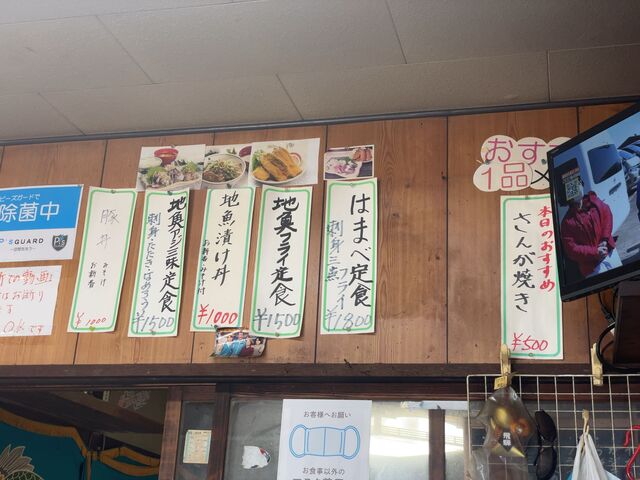 おすす
1品メ
ピーズガードで
除菌中
P'sGUARD
P's
はお断り
す
豚丼
みそ汁
お新香
¥1000
地魚アジ三味定食
刺身たたき・なめろう
¥1500
地魚漬け丼
お新香・みそ汁付
¥1000
地魚フライ定食
¥1500
はまべ定食
刺身三点
フライ
¥1800
本日のおすすめ
さんが焼き
¥500
お客様へお願い
お食事以外の
飛騨